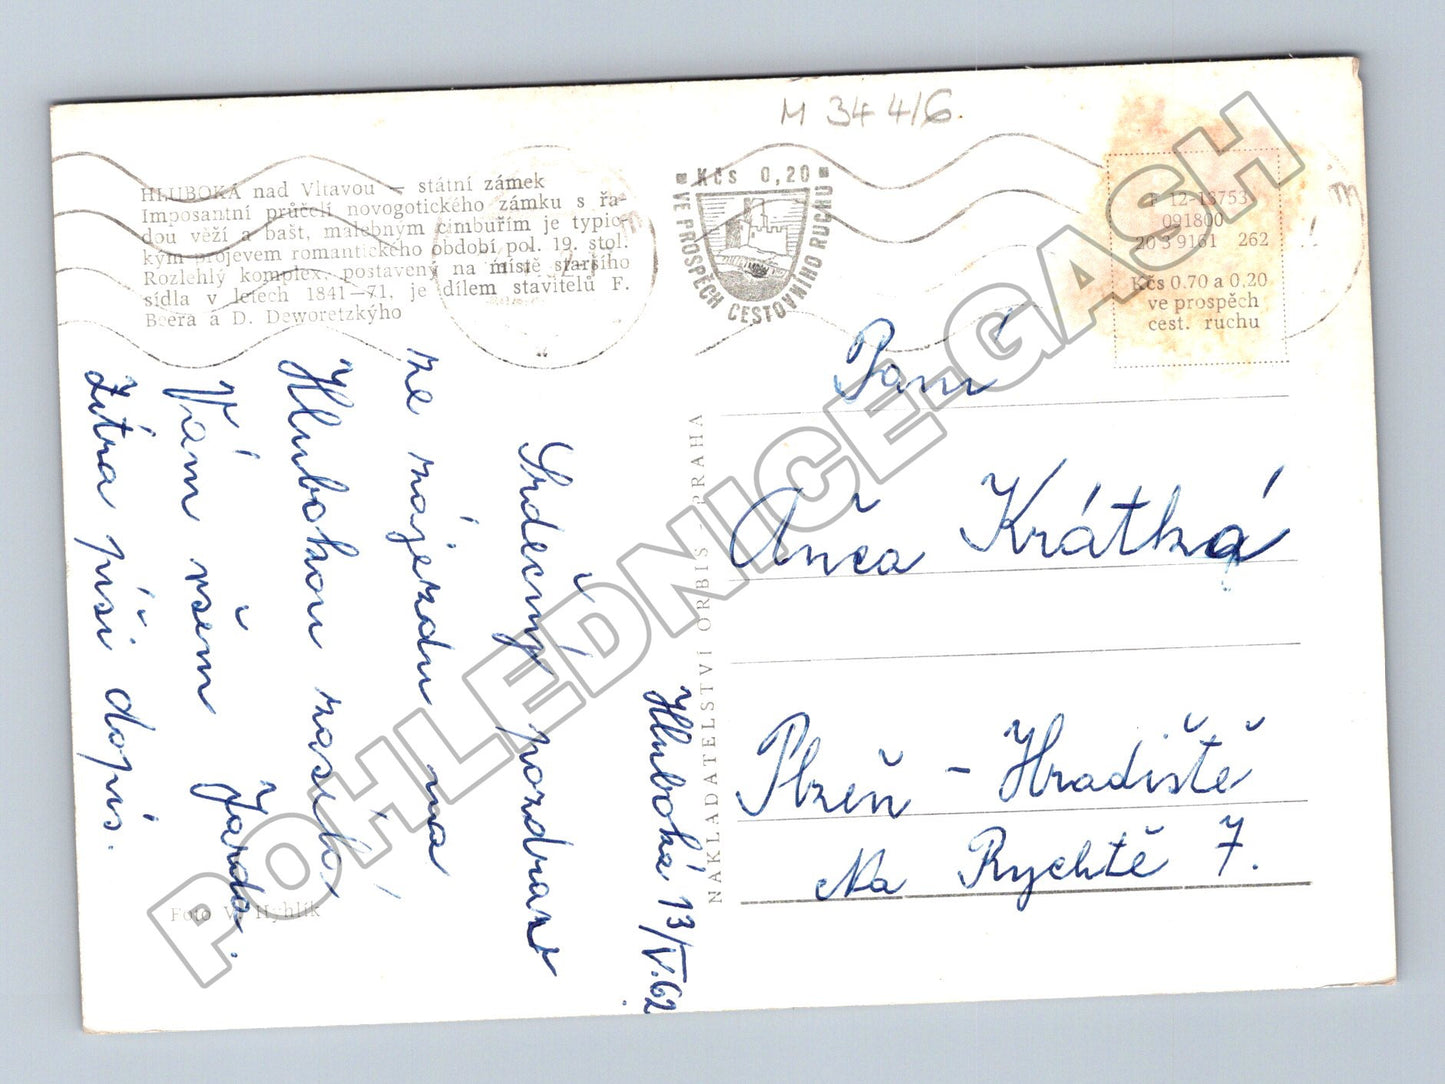 M 34 4/6.
HLUBOKÁ nad Vltavou – státní zámek
Imposantní průčelí novogotického zámku s řa-
dou věží a bašt, malebným cimbuřím je typic-
kým projevem romantického období pol. 19. stol.
Rozlehlý komplex, postavený na místě staršího
sídla v letech 1841–71, je dílem stavitelů F.
Beera a D. Deworetzkýho
Kčs 0,20
VE PROSPĚCH CESTOVNÍHO RUCHU
F 12-13753
091800
20 3 9161 262
Kčs 0.70 a 0.20
ve prospěch
cest. ruchu
Hluboká 13/V.62
Srdečný pozdrav
ze zájezdu na
Hlubokou zasílá
Vám všem Jarda.
Zítra píši dopis.
Foto V. Hyhlík
NAKLADATELSTVÍ ORBIS - PRAHA
Paní
Anča Krátká
Plzeň - Hradiště
Na Rychtě 7.
POHLEDNICE-GASH